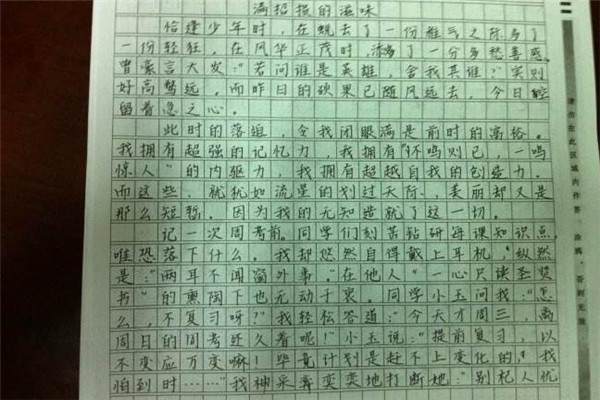 满招损的滋味
恰逢少年时，在蜕去了一份稚气之际多了
一份轻狂，在风华正茂时，添了一分多愁善感。
曾豪言大发："若问谁是英雄，舍我其谁？"实则
好高骛远，而昨日的硕果已随风远去，今日空
留着急之心。
此时的落迫，令我闭眼满是前时的高俗。
我拥有超强的记忆力，我拥有"不鸣则已，一鸣
惊人"的内驱力，我拥有超越自我的创造力。
而这些，就犹如流星的划过天际，美丽却又是
那么短暂。因为我的无知造就了这一切。
记一次周考前。同学们刻苦钻研每课知识点，
唯恐落下什么。我却悠然自得戴上耳机，纵然
是："两耳不闻窗外事。"在他人"一心只读圣贤
书"的熏陶下也无动于衷。同学小玉问我："怎
么，不复习呀？"我轻松答道："今天才周三，离
周日的周考还久着呢！"小玉说："提前复习，以
不变应万变嘛！毕竟计划是赶不上变化的，我
怕到时……"我神采奕奕地打断她："别杞人忧
请勿在此区域内作答、涂鸦，否则无效